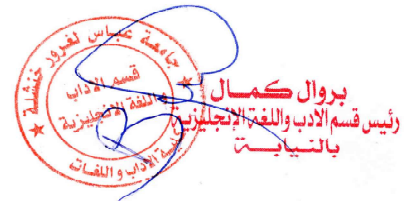 جامعة عباس لغرور خنشلة
قسم الآداب
واللغة الإنجليزية
كلية الآداب واللغات
بروال كمال
رئيس قسم الادب واللغة الإنجليزية
بالنيابة